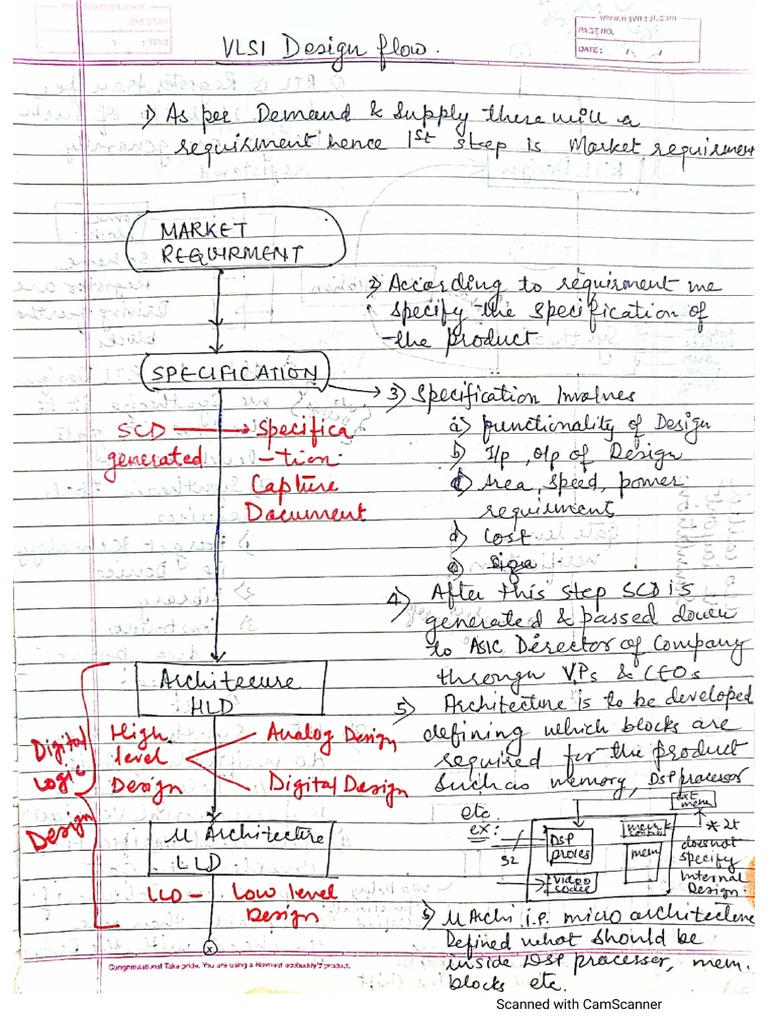 www.navneet.com
PAGE NO.
DATE:
VLSI Design flow.
1) As per Demand & Supply there will a
requirment hence 1st step is Market requirmen
MARKET
REQUIRMENT
2) According to requirment we
specify the specification of
the product
SPECIFICATION
3) Specification Involves
a) functionality of Design
b) I/p, O/p of Design
c) Area, speed, power
requirment
d) Cost
e)
SCD → Specifica
generated -tion
Capture
Document
4) After this step SCD is
generated & passed down
to ASIC Director of Company
through VPs & CEOs
Architecure
HLD
5) Architecture is to be developed
defining which blocks are
required for the product
Such as memory, DSP procesor
etc.
Digital
Logic
Design
High
level
Design
Analog Design
Digital Design
ex:
32
DSP
proces
video
codec
mem
ext
mem
* It
does not
specify
Internal
Design
μ Architecture
LLD
LLD - Low level
Design
6) μ Archi i.e. micro architecture
Defined what should be
inside DSP processor, mem.
blocks etc.
x
Congratulations! Take pride. You are using a Navneet ecobuddy'z product.
Scanned with CamScanner